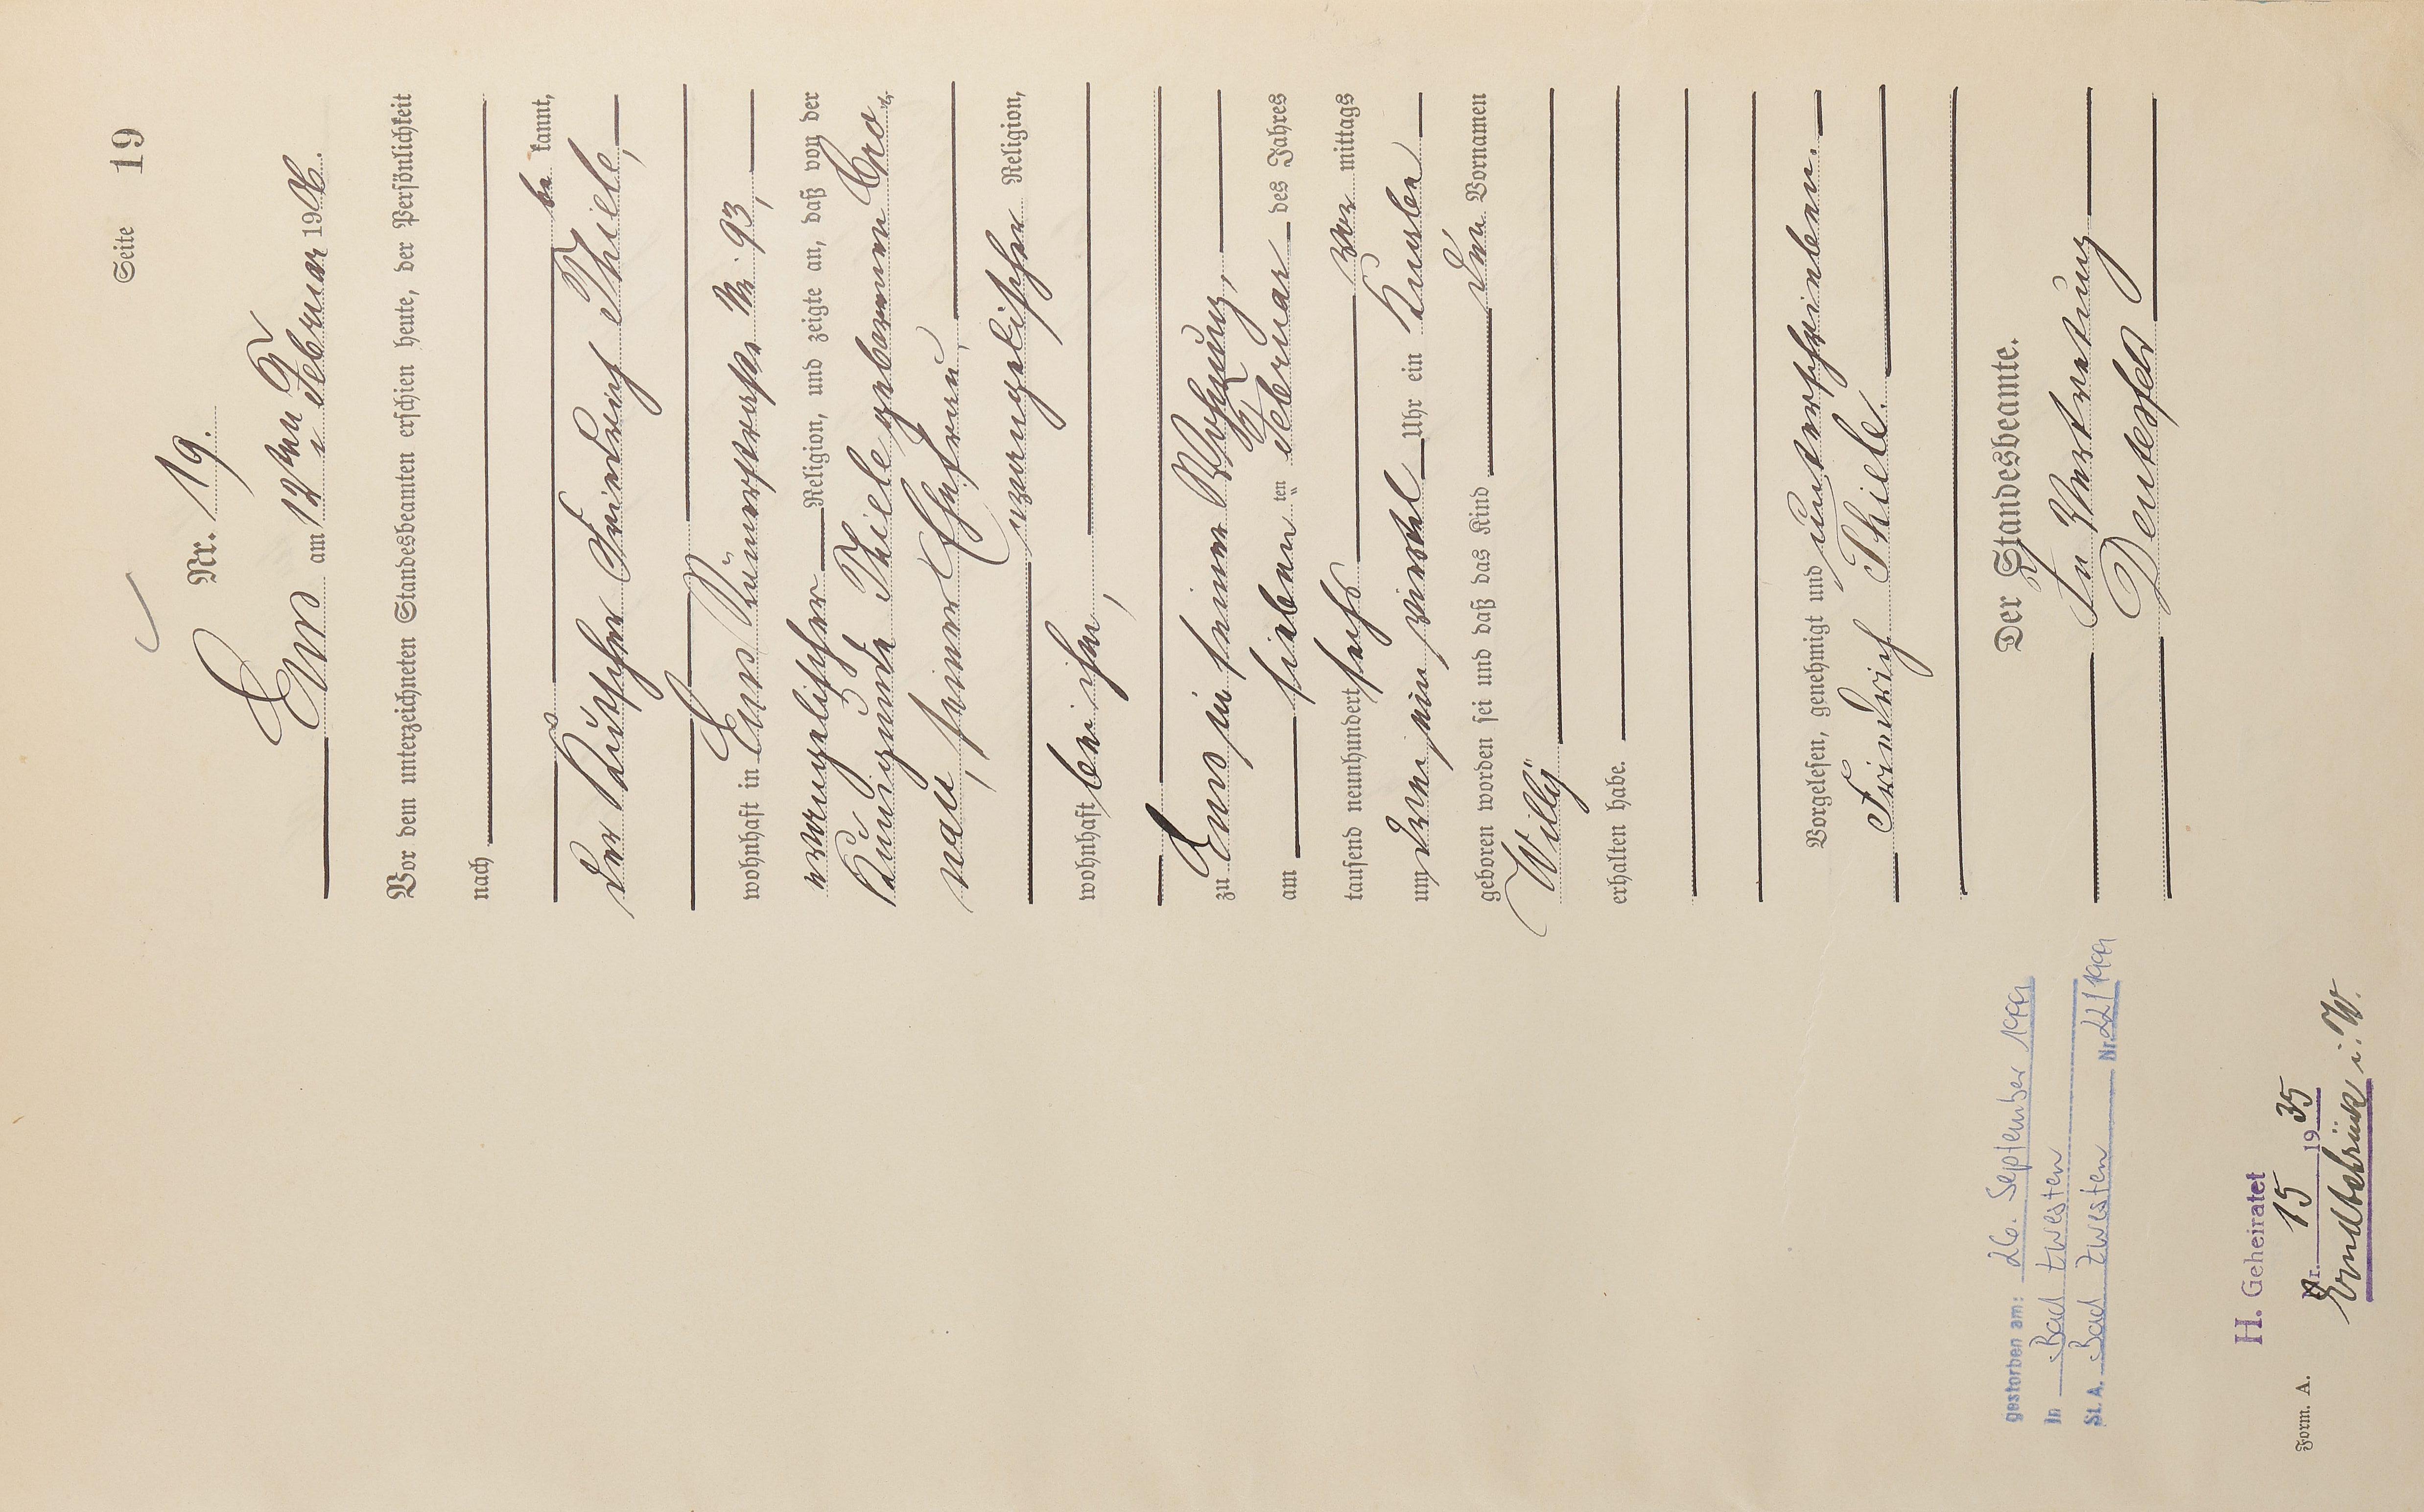 Seite 19
Nr. 19.
Ems am 12ten Februar 1906.
Vor dem unterzeichneten Standesbeamten erschien heute, der Persönlichkeit
nach
be kannt,
der Kutscher Friedrich Thiele,
wohnhaft in Ems, Nr. 93,
evangelischer Religion, und zeigte an, daß von der
Kunigunde Thiele geborenen Cro-
nau, seiner Ehefrau,
evangelischer Religion,
wohnhaft bei ihm,
zu Ems in seiner Wohnung,
am sieben ten Februar des Jahres
tausend neunhundert sechs Vor mittags
um drei ein viertel Uhr ein Knabe
geboren worden sei und daß das Kind den Vornamen
Willy
erhalten habe.
Vorgelesen, genehmigt und unterschrieben.
Friedrich Thiele.
Der Standesbeamte.
In Vertretung
gestorben am: 26. September 1991
In Bad Zwesten
St. A. Bad Zwesten Nr. 22/1991
H. Geheiratet
Nr. 15 1935
Erndtebrück i. W.
Form. A.